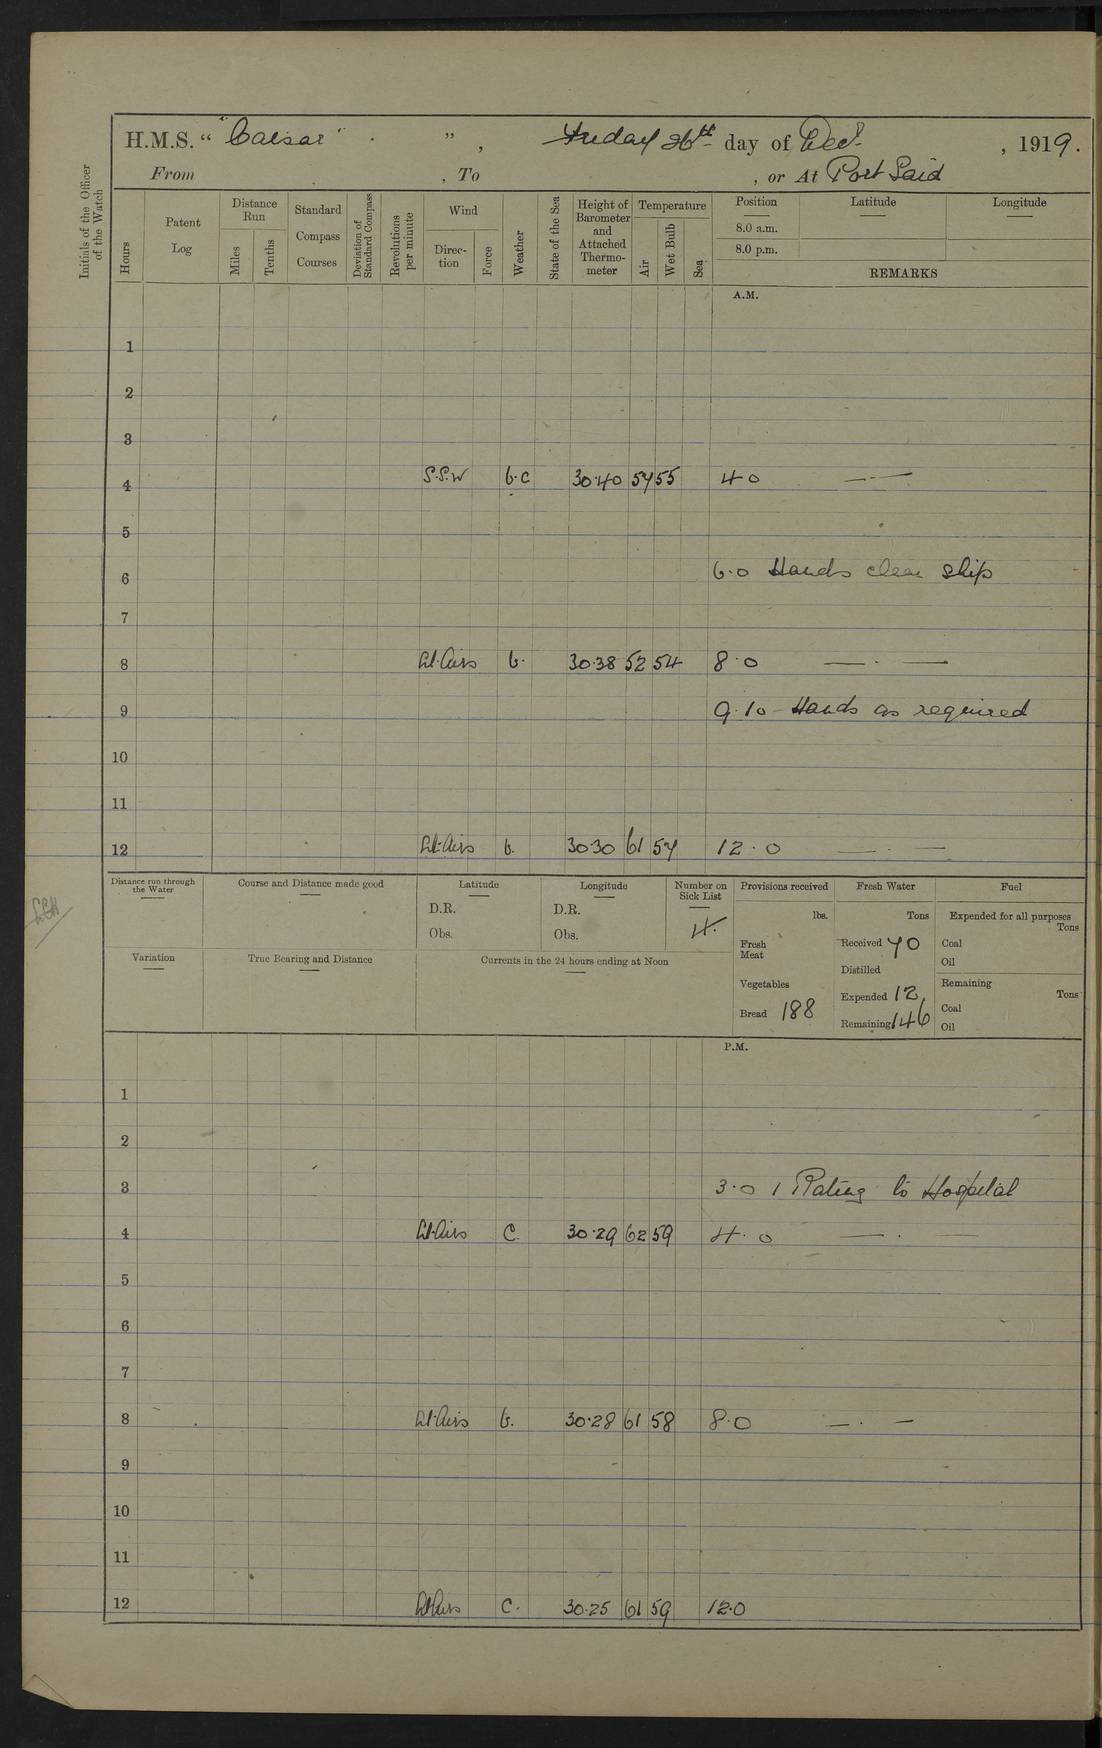 H.M.S. " "Caesar" " , Friday 26th day of Decr. , 1919.
From , To , or At Port Said
Initials of the Officer of the Watch
Hours
Patent Log
Distance Run
Miles
Tenths
Standard Compass Courses
Deviation of Standard Compass
Revolutions per minute
Wind
Direc-tion
Force
Weather
State of the Sea
Height of Barometer and Attached Thermo-meter
Temperature
Air
Wet Bulb
Sea
Position Latitude Longitude
8.0 a.m.
8.0 p.m.
REMARKS
A.M.
1
2
3
4 S.S.W b.c 30.40 57 55 4 0 — · —
5
6 6.0 Hands clean ship
7
8 Lt. Airs b. 30.38 52 54 8.0 — · —
9 9.10 Hands as required
10
11
12 Lt. Airs b. 30.30 61 57 12.0 — · —
Distance run through the Water
Course and Distance made good
Latitude
D.R.
Obs.
Longitude
D.R.
Obs.
Number on Sick List
4.
Provisions received
lbs.
Fresh Meat
Vegetables
Bread 188
Fresh Water
Tons
Received 70
Distilled
Expended 12
Remaining 146
Fuel
Expended for all purposes
Tons
Coal
Oil
Remaining
Tons
Coal
Oil
Variation
True Bearing and Distance
Currents in the 24 hours ending at Noon
P.M.
1
2
3 3.0 1 Rating to Hospital
4 Lt. Airs C. 30.29 62 59 4.0 — · —
5
6
7
8 Lt. Airs b. 30.28 61 58 8.0 — · —
9
10
11
12 Lt Airs C. 30.25 61 59 12.0